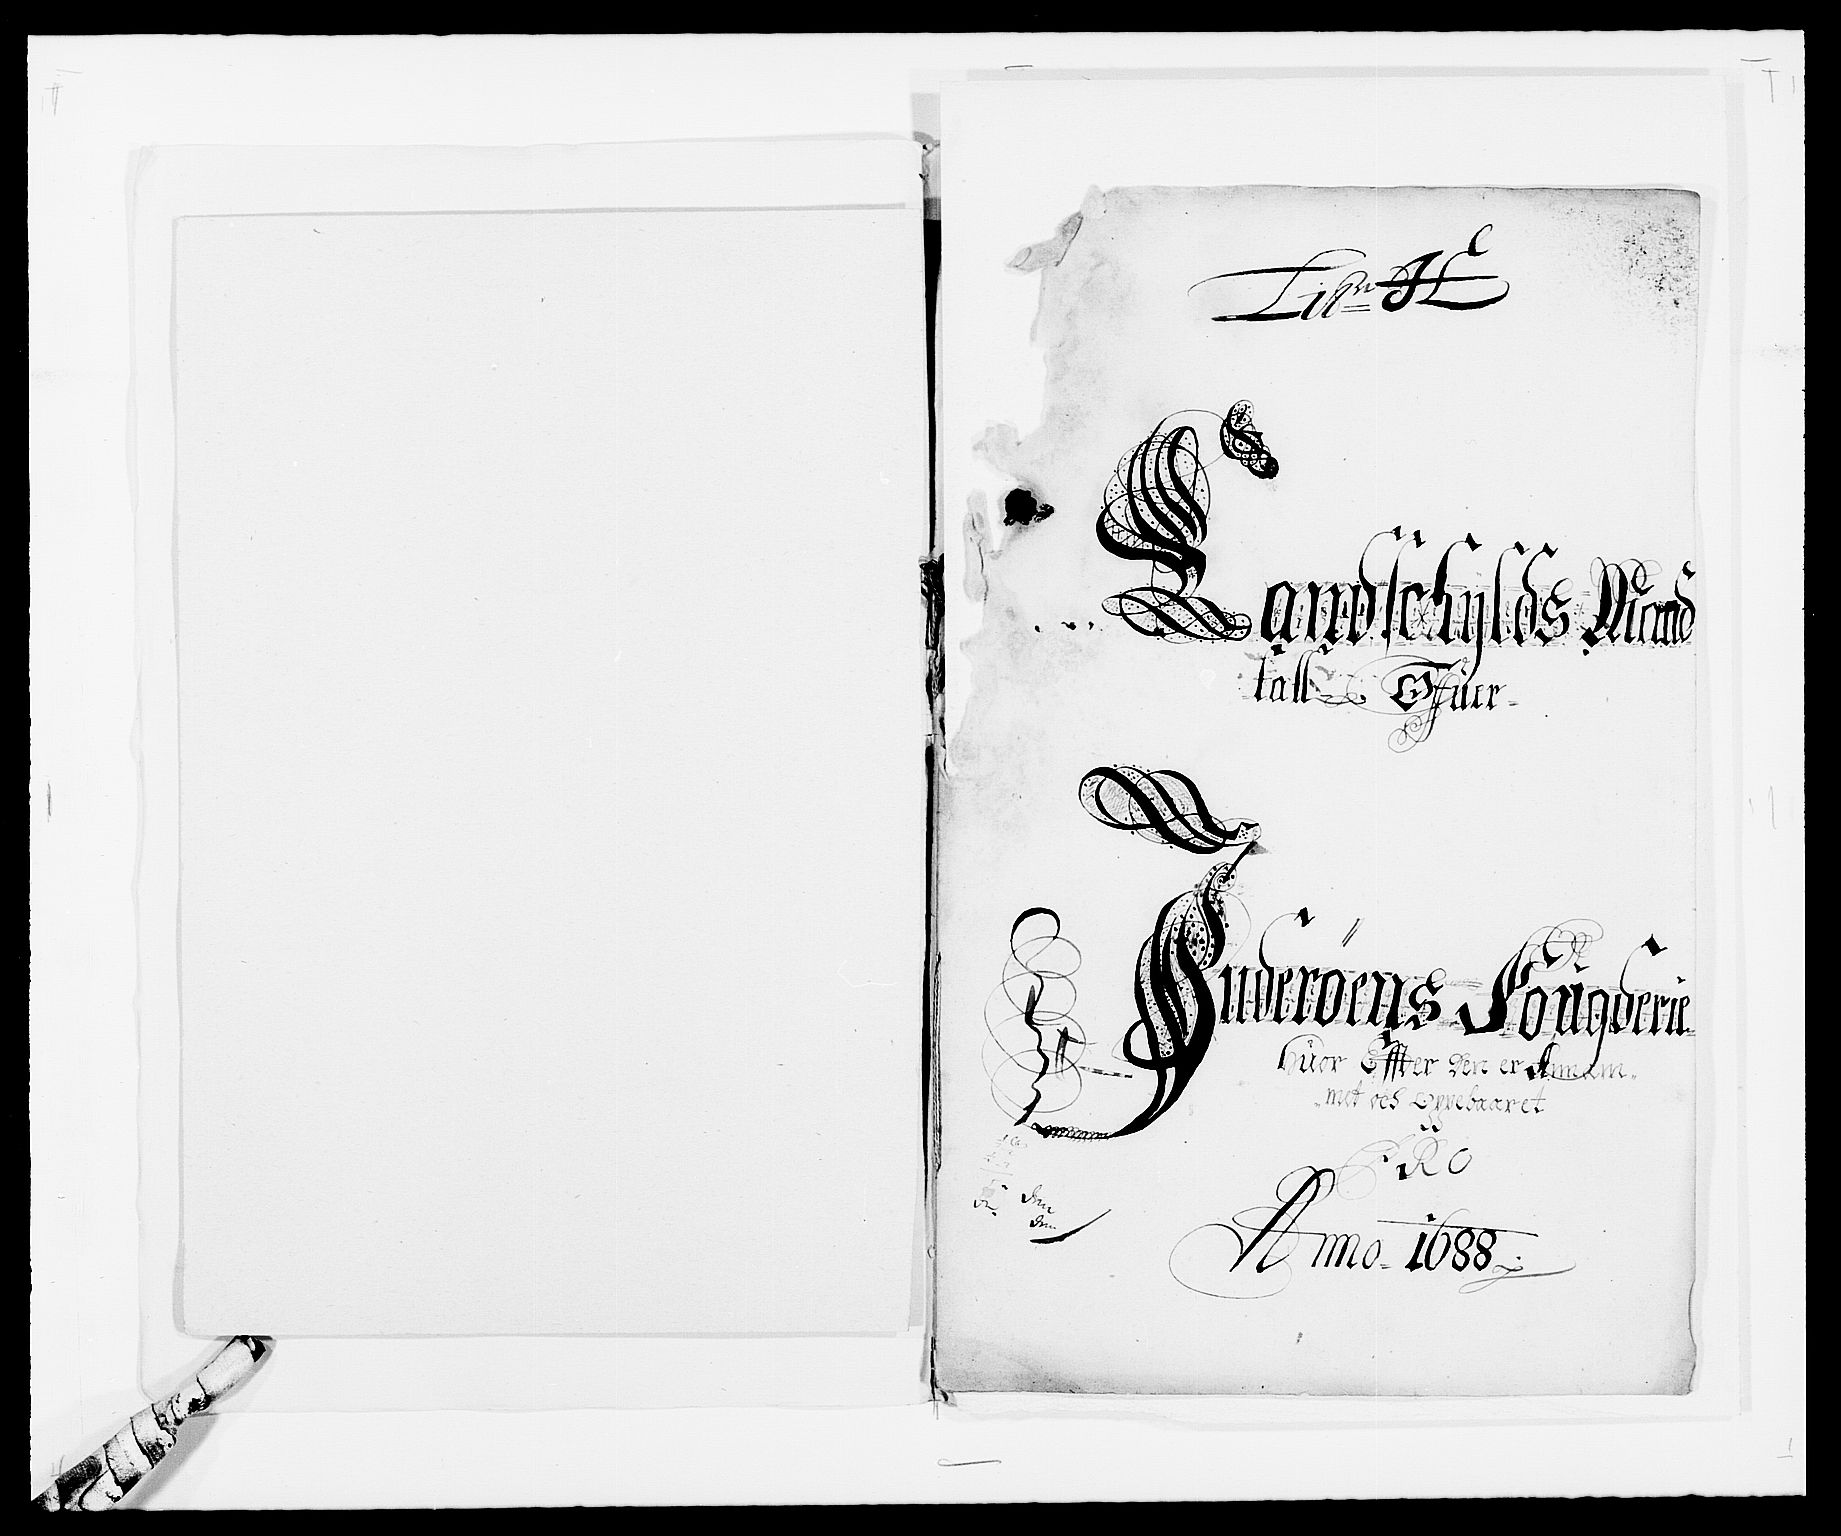 Litr H
Landschylds Mand
tall Offuer
Inderöens Fougderie
huor Effter den er Annam-
met och Oppebaaret
PRO
Anno 1688